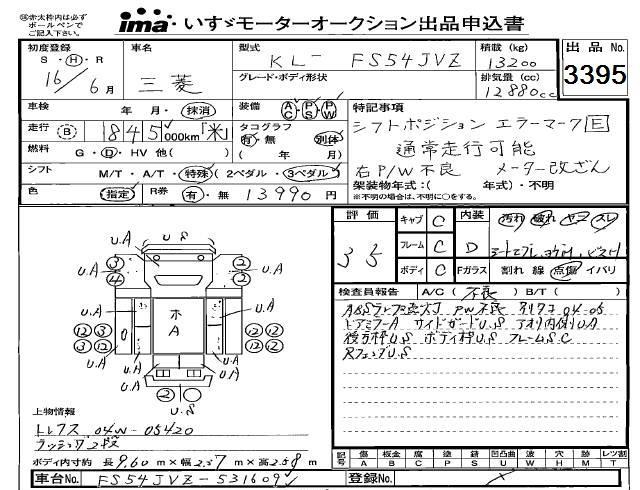 ㊟赤太枠内は必ず
ボールペンで
ご記入下さい。
ima いすゞモーターオークション出品申込書
初度登録 車名 型式 積載 (kg) 出品 No.
S・H・R 16/6月 三菱 KL- FS54JVZ 13200 3395
グレード・ボディ形状 排気量 (cc)
12880cc
車検 年 月・抹消 装備 AC PS PW 特記事項
走行 B 845,000km「米」 タコグラフ シフトポジション エラーマーク E
有・無 別体 通常走行可能
燃料 G・D・HV 他( ) ( 年 月)
右P/W不良 メーター改ざん
シフト M/T・A/T・特殊( 2ペダル・3ペダル) 架装物年式:( 年式)・不明
色 (指定) R券 有・無 13990 円 ※不明の場合は、不明に○をする。
評価 35
キャブ C 内装 汚れ 破れ ヤニ スレ
フレーム C D
ボディ C Fガラス 割れ 線 点傷 イバリ
検査員報告 A/C( 不良 ) B/T( )
PW不良
ドアミラーA サイドガードU.S アオリ内側U.A
後方枠U.S ボディ枠U.S フレームS.C
RフェンダU.S
U.S
U.A U.A
3 2
4 2
ホ
A
U.A U.A
12 3 12 12
12 3 12 12
U.A U.A
2
U.S
上物情報
トレクス 04W-05420
ラッシング2段
ボディ内寸約 長9.60m×幅2.37m×高2.58m
記号 傷 A 板金 B 腐 C 塗 P 錆 S 凹 U 凸凹曲 U 波 W 穴 H 無 M レツ割 T
車台No. FS54JVZ-531609 登録No.